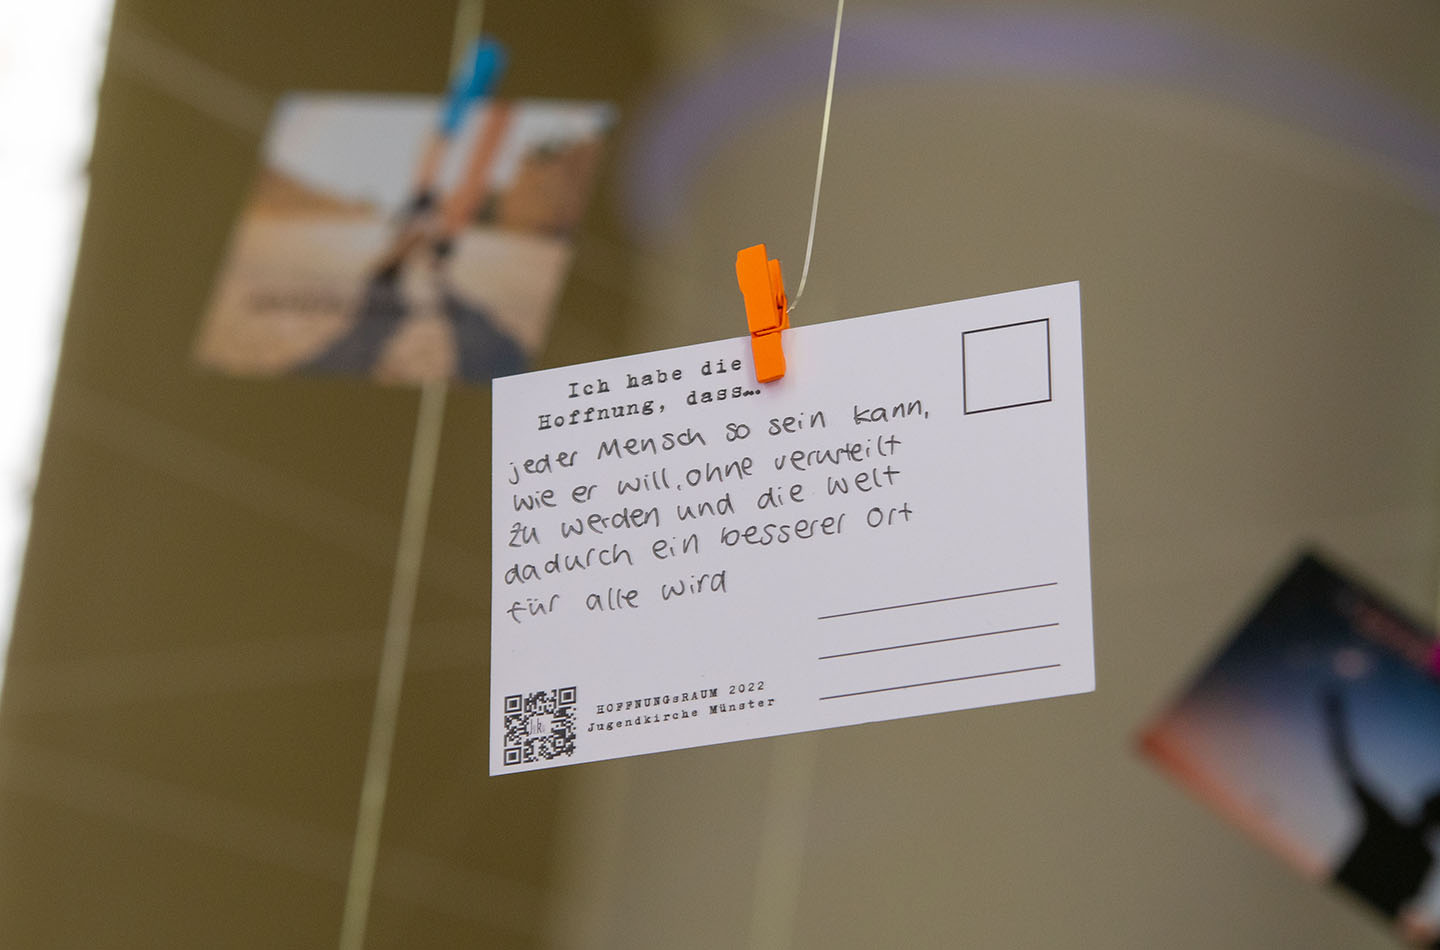 Ich habe die
Hoffnung, dass...
jeder Mensch so sein kann,
wie er will, ohne verurteilt
zu werden und die Welt
dadurch ein besserer Ort
für alle wird
HOFFNUNGsRAUM 2022
Jugendkirche Münster